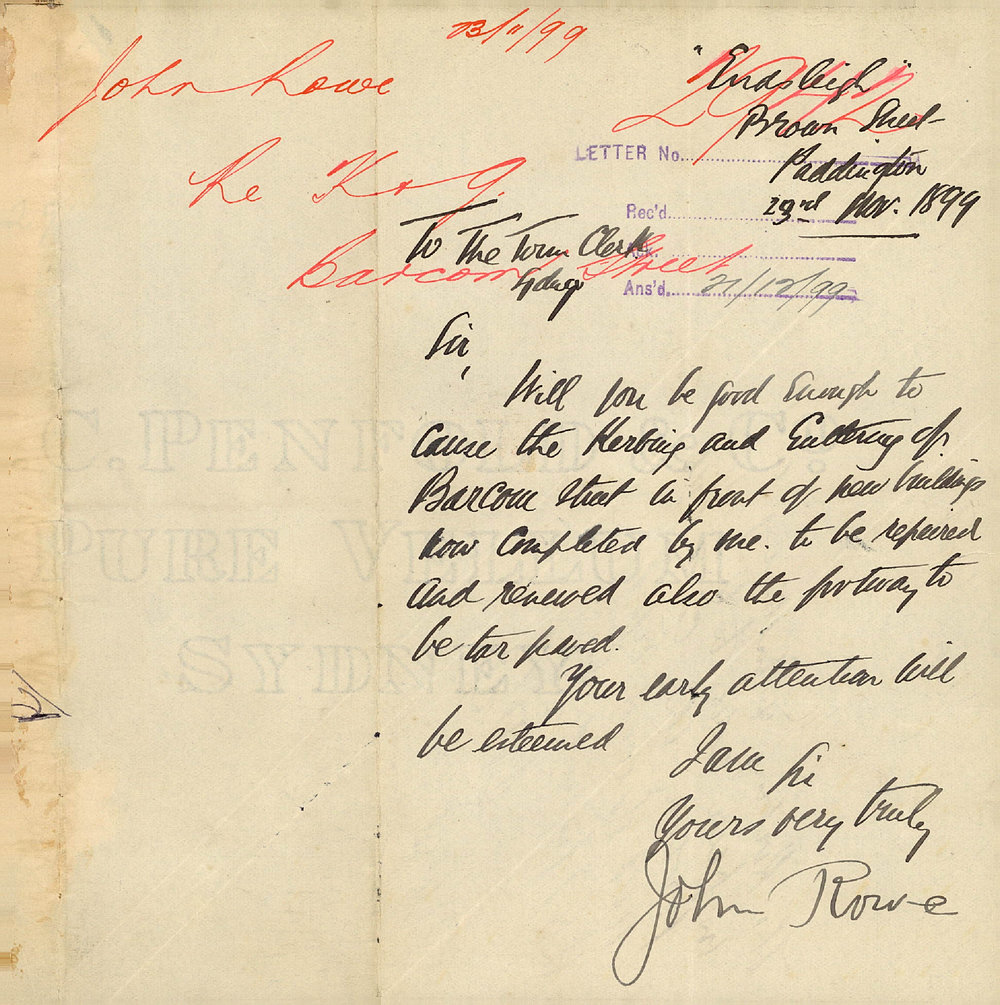 23/11/99
John Rowe
Re K & G.
Barcom Street
"Endsleigh"
Brown Street
Paddington
23rd Nov. 1899
LETTER No.
Rec'd.
Ack.
Ans'd. 21/12/99
To The Town Clerk
Sydney
Sir,
Will you be good enough to
cause the Kerbing and Guttering of
Barcom Street in front of new buildings
now completed by me. to be repaired
and renewed also the footway to
be tar paved.
Your early attention will
be esteemed
I am Sir
Yours very truly
John Rowe
C. PENFOLD & Co.
PURE VELLUM
SYDNEY